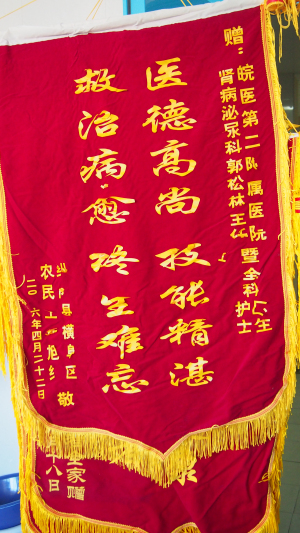 赠：皖医第二附属医院
肾病泌尿科郭松林王 暨全科 生
护士
医德高尚 技能精湛
救治病愈 终生难忘
县横 区 敬
农民
二〇一六年四月二十二日
全家赠
十八日